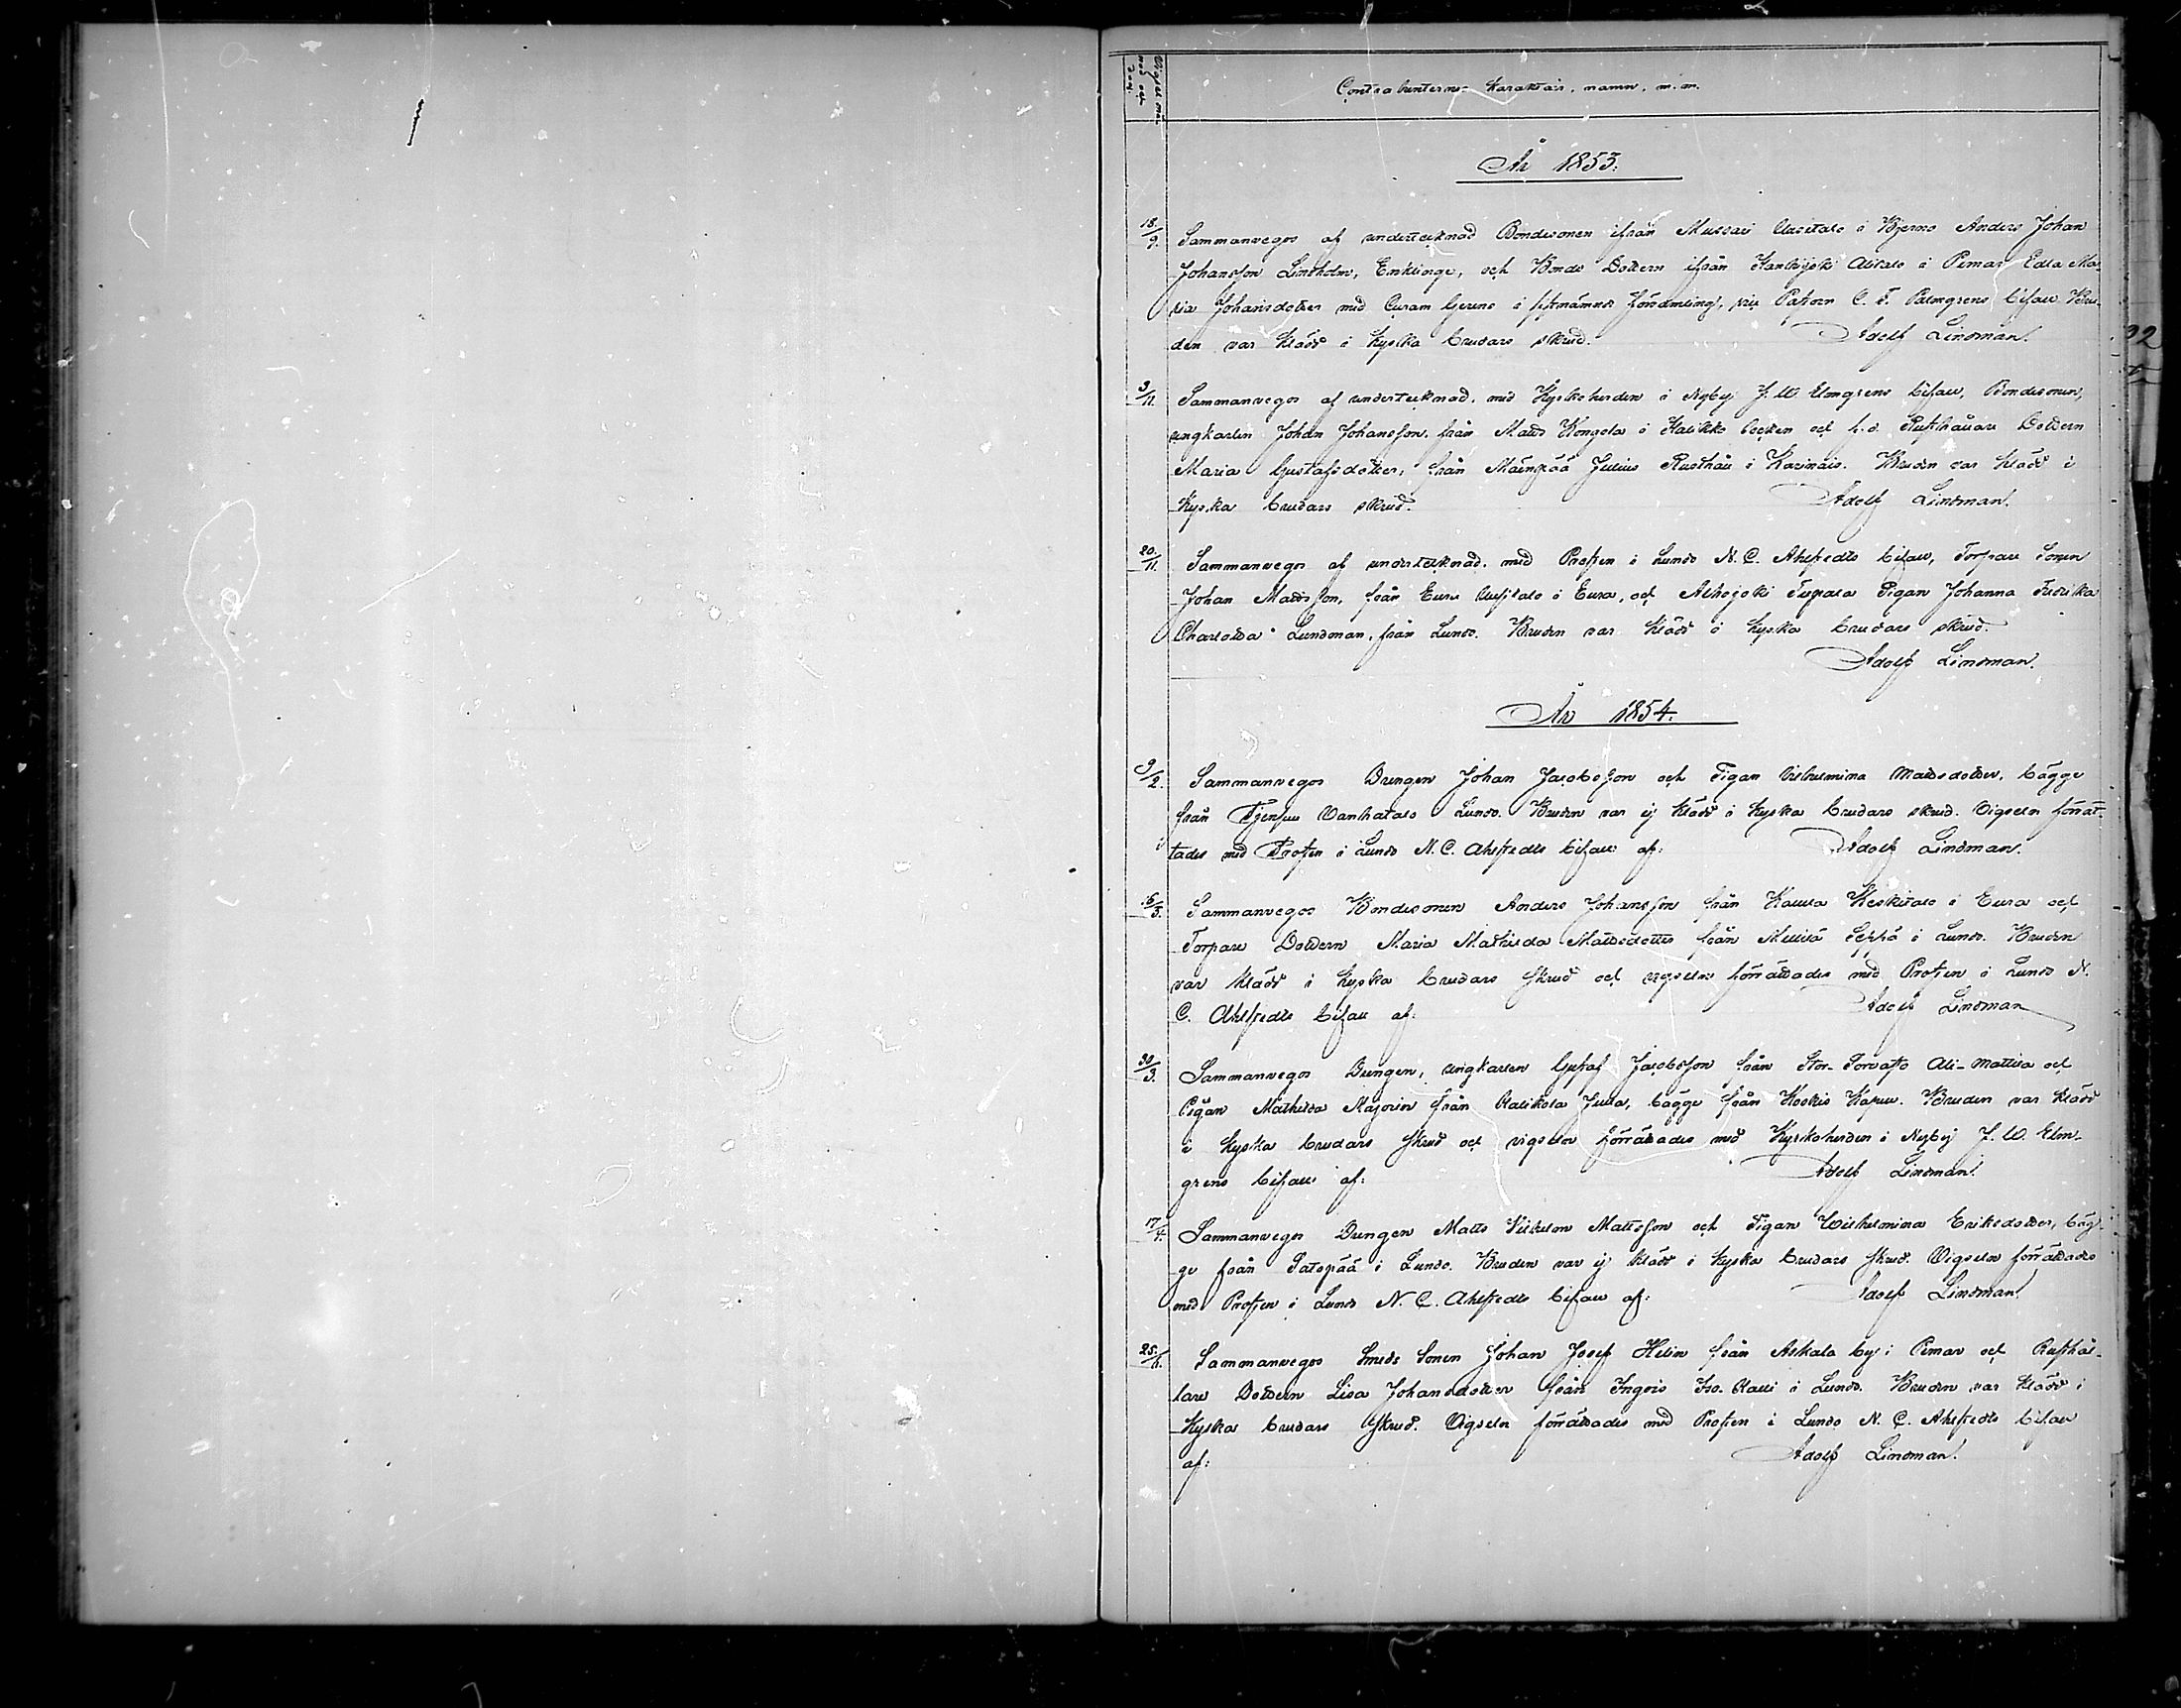 Contrahenternes karaktär, namn, m.m.
År 1853.
18/9. Sammanvegos af undertecknad Bondesonen ifrån Mussari Uusitalo i Bjerno Anders Johan
Johansson Lindholm, Enkling, och Bonde Dottern ifrån Alitalo i Pemar Edla Ma-
ria Johansdotter med i sistnämnde församling, C. F. Palmgrens bifall. Bru-
den var klädd i kyska brudars skrud. Adolf Lindman.
3/11. Sammanvegos af undertecknad, med Kyrkoherden i Nyby J. W. Elmgrens bifall, Bondesonen,
ungkarlen Johan Johansson, från Matts Kongola i Halikko socken och f.d. Rusthållare Dottern
Maria Gustafsdotter, från Mäenpää Julius Rusthåll i Karinais. Bruden var klädd i
kyska brudars skrud. Adolf Lindman.
20/11. Sammanvegos af undertecknad, med Prosten i Lundo N. C. Ahlstedts bifall, Torpare Sonen
Johan Mattsson, från Eura i Eura, och Pigan Johanna Fredrika
Charlotta Lundman, från Lundo. Bruden var klädd i kyska brudars skrud.
Adolf Lindman.
År 1854.
9/2. Sammanvegos Drengen Johan Jacobsson och Pigan Vilhelmina Mattsdotter, bägge
från Vanhatalo i Lundo. Bruden var ej klädd i kyska brudars skrud. Vigseln förrät-
tades med Prosten i Lundo N. C. Ahlstedts bifall af: Adolf Lindman.
16/3. Sammanvegos Bondesonen Anders Johansson från Kaula Keskitalo i Eura och
Torpare Dottern Maria Mathilda Mattsdotter från Mellilä Seppä i Lundo. Bruden
var klädd i kyska brudars skrud och vigseln förrättades med Prosten i Lundo N.
C. Ahlstedts bifall af: Adolf Lindman
30/3. Sammanvegos Drengen, ungkarlen Gustaf Jacobsson från Stor- Ali-Mattila och
Pigan Mathilda Majorin från Julla, bägge från Koskis Kapell. Bruden var klädd
i kyska brudars skrud och vigseln förrättades med Kyrkoherden i Nyby J. W. Elm-
grens bifall af: Adolf Lindman.
17/4. Sammanvegos Drengen Matts Vilhelm Mattsson och Pigan Wilhelmina Eriksdotter, bäg-
ge från Satopää i Lundo. Bruden var ej klädd i kyska brudars skrud. Vigseln förrättades
med Prosten i Lundo N. C. Ahlstedts bifall af: Adolf Lindman
25/11. Sammanvegos Smeds Sonen Johan Josef Helin från Askala by i Pemar och Rusthål-
lare Dottern Lisa Johansdotter från Ingois Iso-Kalli i Lundo. Bruden var klädd i
kyska brudars skrud. Vigseln förrättades med Prosten i Lundo N. C. Ahlstedts bifall
af: Adolf Lindman.